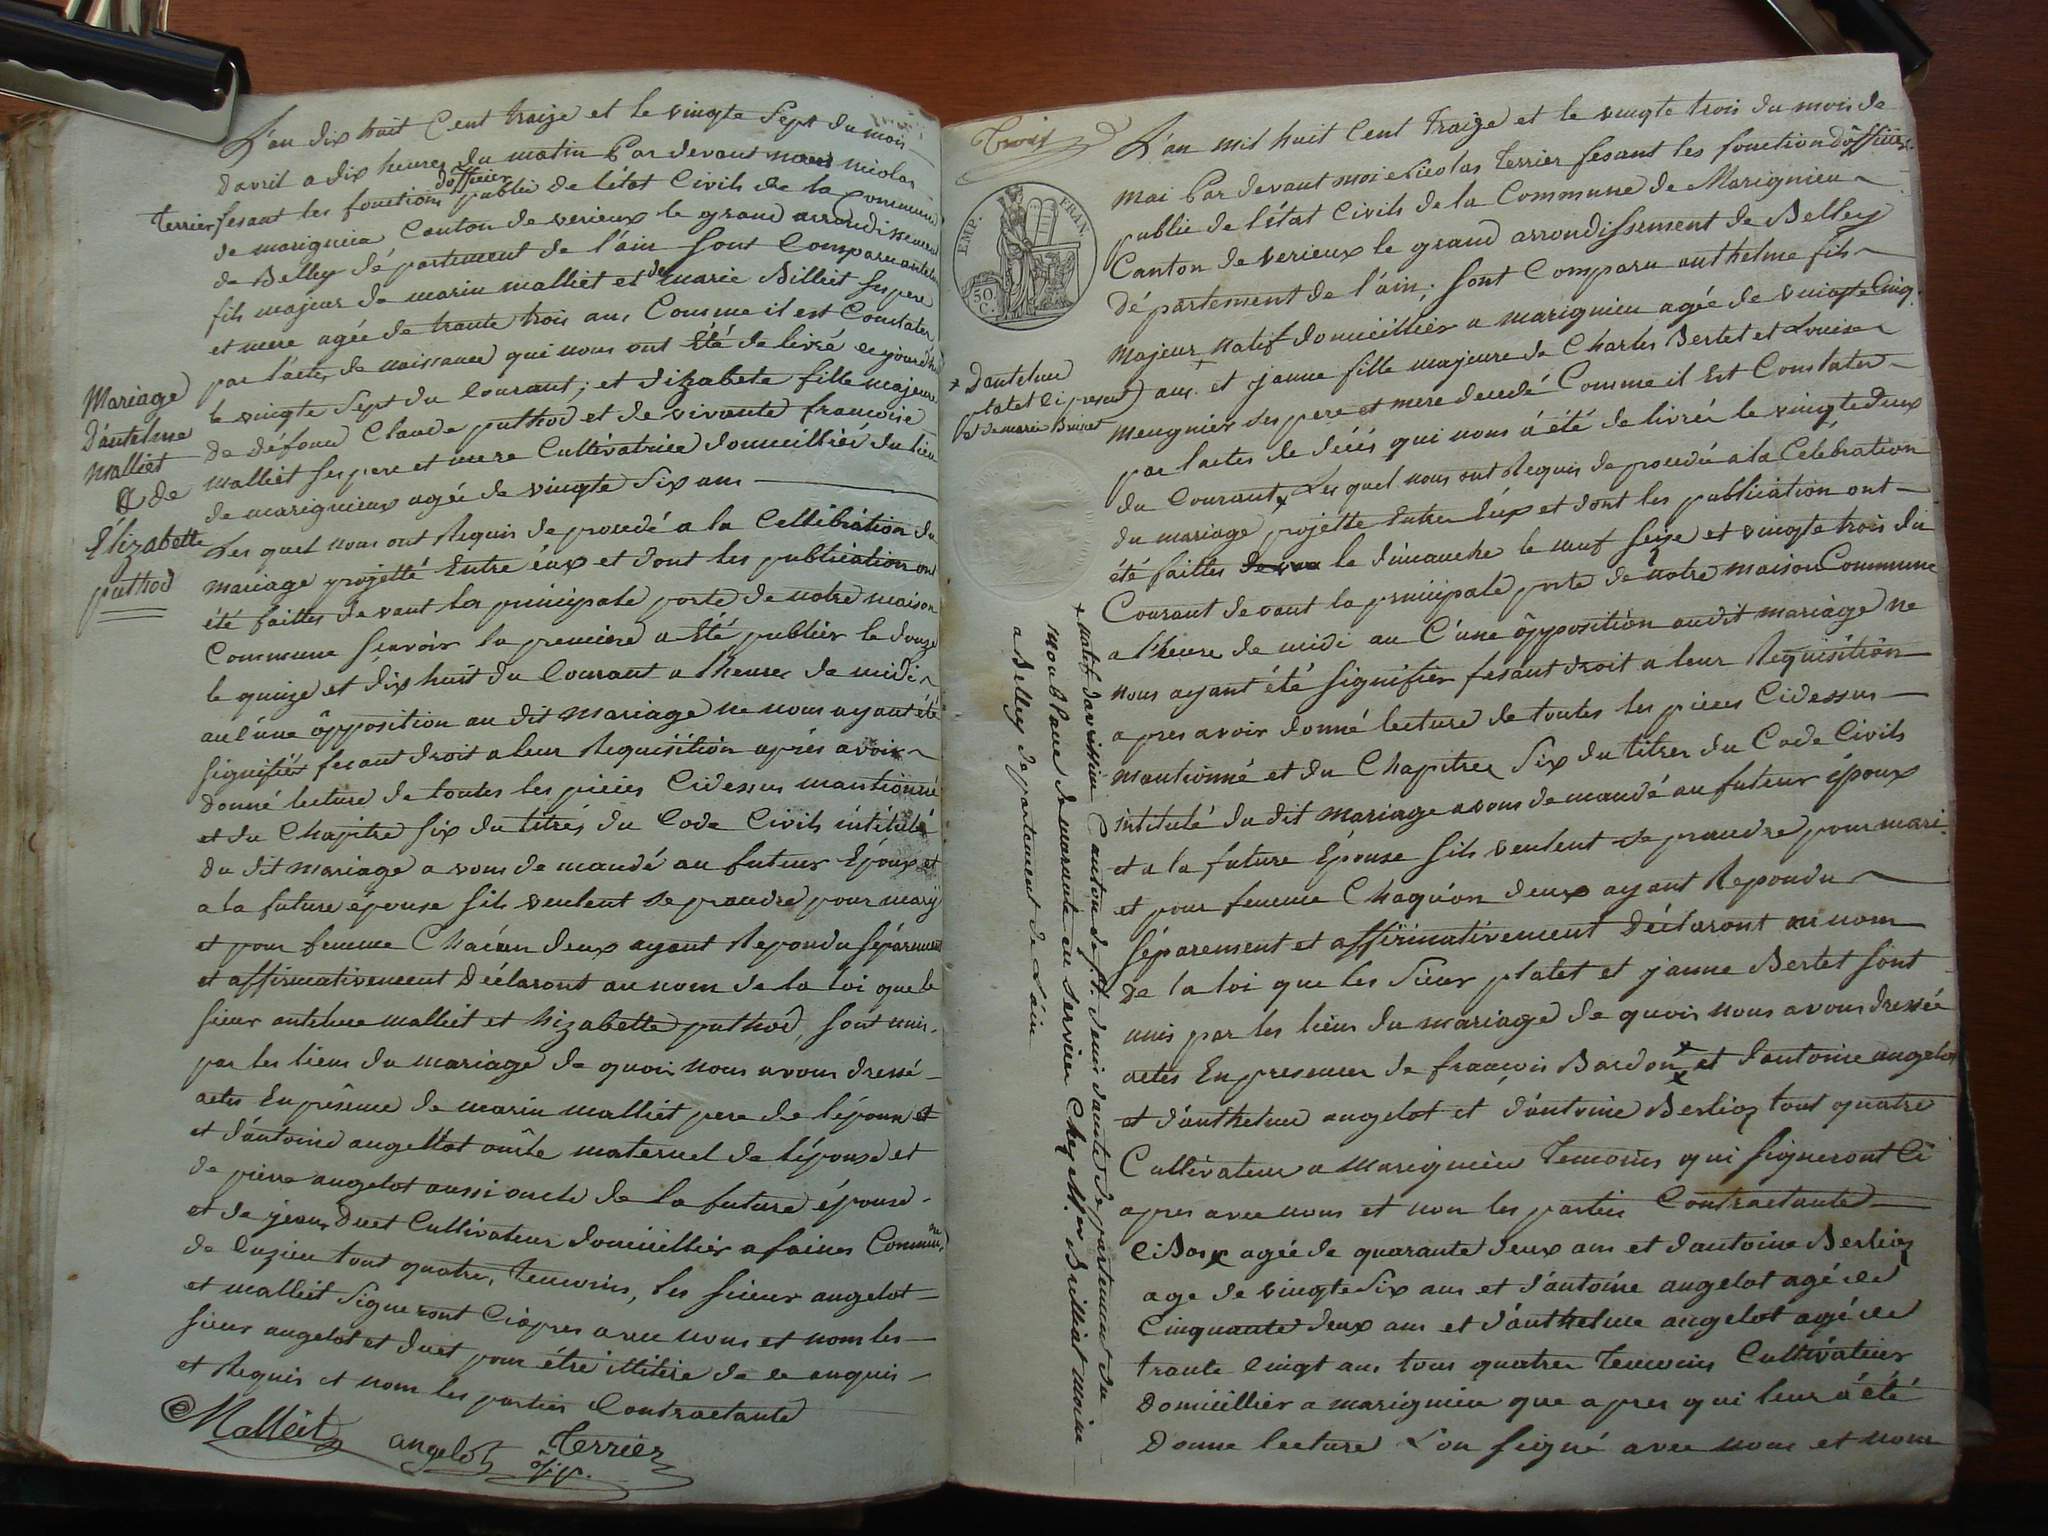 L'an dix huit Cent traize et le vingte Sept du mois
davril a dix heures du matin Par devant nous nicolas
Terrier fesant les fonctions d'officier public de l'état Civils de la Commune
de marignieu Canton de verieux le grand arrondissement
de Belley département de l'ain sont Comparu antelme
fils majeur de marin malliet et de marie Billiet ses pere
et mere agée de trante trois ans, Comme il est Constater
par l'actes de naissance qui nous ont été de livré cejourdhui
le vingte Sept du Courant; et élizabete fille majeure
Mariage
D'antelme
Malliet
& de
Élizabette
puthod
de défond Claude puthod et de vivante francoise
malliet ses pere et mere Cultivatrice domicilliéé du lieu
de marignieux agée de vingte Six ans
Les quel nous ont Requis de proccedé a la Cellibration du
mariage projetté Entre éux et dont les publication ont
été faittes de vant la principale porte de notre maison
Commune Scavoir la premiere a été publier le douze
le quinze et dix huit du Courant a l'heure de midi
au l'une ôpposition au dit mariage ne nous ayant été
signifiéé fesant droit a leur Requisition aprés avoir
donné lecture de toutes les pieces Cidessus mantionné
et du Chapitre Six du titres du Code Civils intitulé
du dit mariage a vons de mandé au futeur Époux et
a la future épouse sils veulent se prandre pour mary
et pour femme Chacun deux ayant Repondu séparement
et affirmativement Déclaront au nom de la loi que le
sieur antelme malliet et hizabette puthod, sont unis
par les liens du mariage de quoi nous avons dressé
actes En présence de marin malliet pere de l'époux et
et d'antoine angellot oncle maternel de l'épouse et
de pierre angelot aussi oncle de la future épouse
et de jean Duet Cultivateur domicillier a faines Commune
de Cuzieu tout quatre, temoins, les sieur angelot
et malliet signeront Ciapres avec nous et nom les
sieur angelot et duet pour étre illitire de ce enquis
et Requis et nom les parties Contractante
Malleit angelot Terrier
offi.
Trois
EMP. FRAN.
50 C.
L'an mil huit Cent traize et le vingte trois du mois de
mai Par devant moi Nicolas Terrier fesant les fonction d'officier
public de l'état Civils de la Commune de Marignieu
Canton de verieux le grand arrondissement de Belley
département de l'ain, sont Comparu anthelme fils
majeur natif domicillier a marignieu agée de vuingte Cinq
x Dantelme
platet Ci present
et de marie Brunet
ans et janne fille majeure de Charles Bertet et Louise
meugnier ses pere et mere decedé Comme il Est Constater
par lactes de décés qui nous à été de livrée le vingte deux
du Courant x Les quel nous ont Requis de proccedé a la Celebration
du mariage projette Entre Éux et dont les publication ont
été faittes de van le dimanche le neuf seize et vingte trois du
Courant devant la principale porte de notre maison Commune
a l'heure de midi au C'une ôpposition audit mariage ne
nous ayant été signifier fesant droit a leur Requisition
apres avoir donné lecture de toutes les pieces Cidessus
mantionné et du Chapitre Six du titres du Code Civils
intitulé du dit mariage avons demandé au futeur époux
et a la future Épouse sils veulent se prandre pour mari
et pour femme Chaquon deux ayant Repondu
séparement et affirmativement Déclaront au nom
De la loi que les Sieur platet et janne Bertet sont
unis par les liens du mariage de quoi nous avons dressée
actes En presence de francois Bardon x et d'antoine angelot
et d'anthelme angelot et d'antoine Berlioz tout quatre
Cultivateur a marignieu temoins qui signeront Ci
apres avec nous et non les parties Contractante
agée de quarante deux ans et d'antoine Berlioz
age de vingte Six ans et d'antoine angelot agé de
Cinquante deux ans et d'anthelme angelot agé de
trante Cingt ans tous quatre temoins Cultivateur
domicillier a marignieu que apres qui leur à été
donne lecture L'on signé avec nous et nom
x natif davission Canton de St. denis dauté departement du
mon blanc demeurante en service Chez Mr. Brilliat moine
a Belley departement de Lain